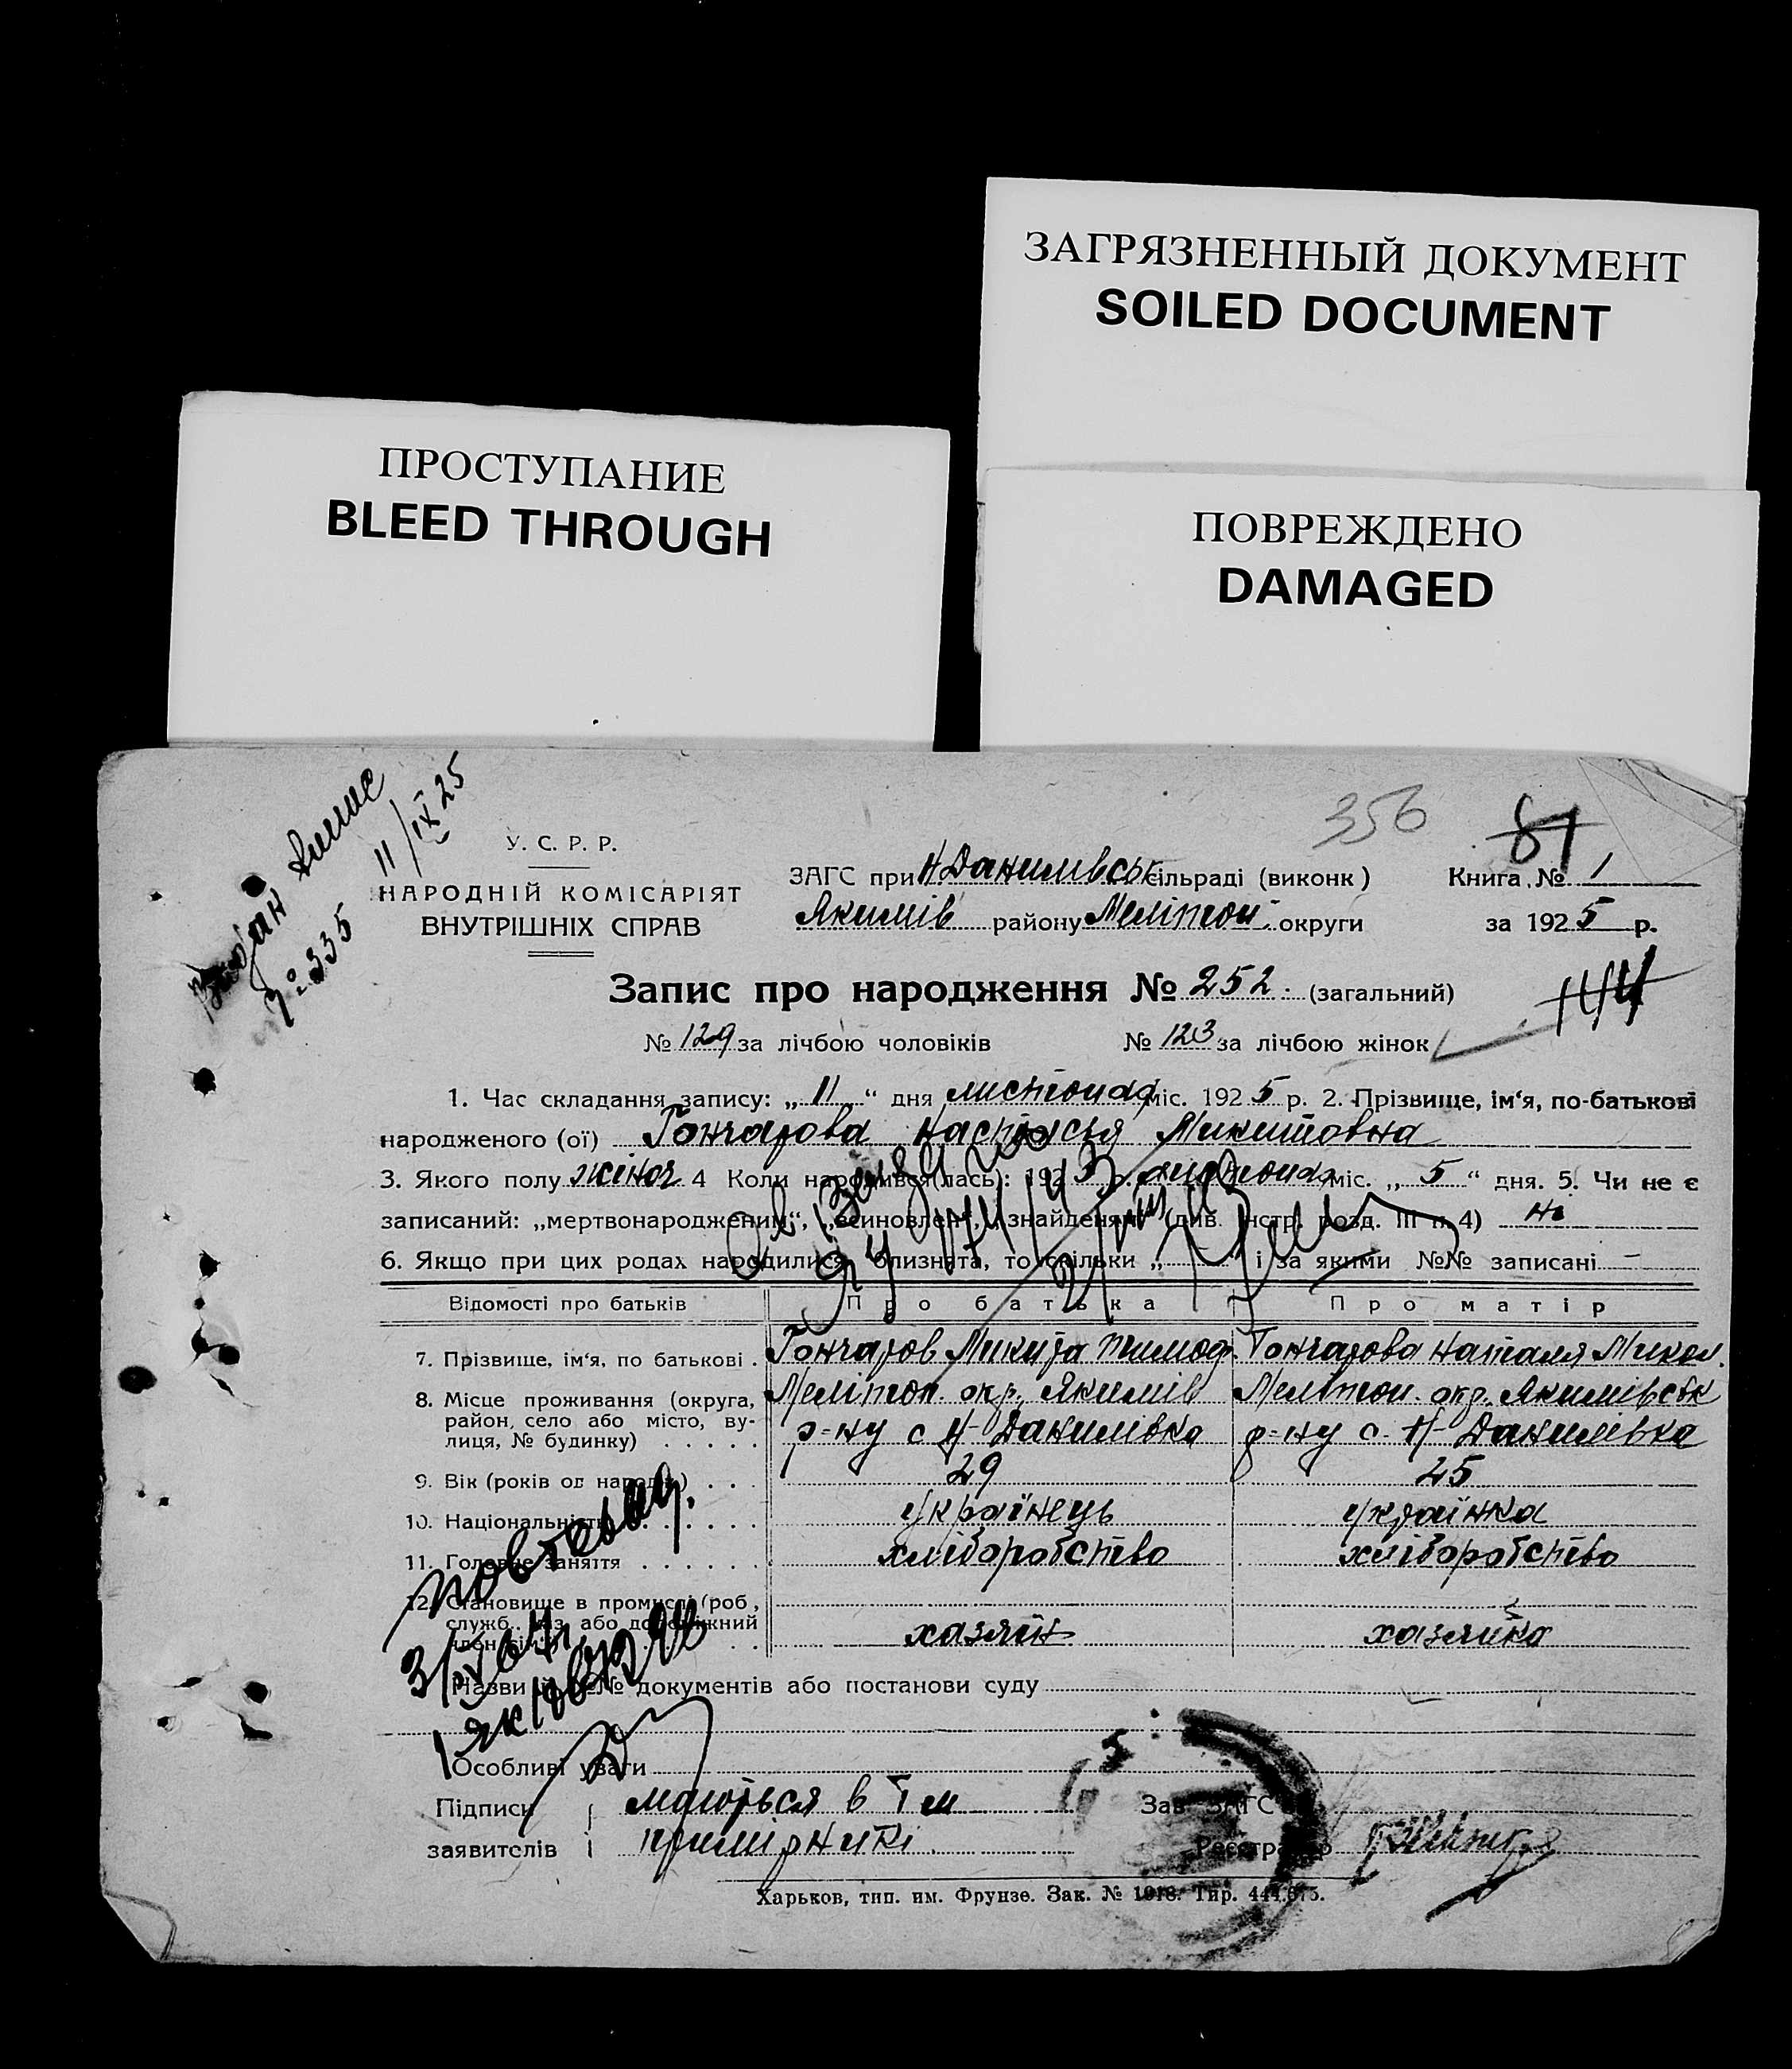 ЗАГРЯЗНЕННЫЙ ДОКУМЕНТ
SOILED DOCUMENT
ПРОСТУПАНИЕ
BLEED THROUGH
ПОВРЕЖДЕНО
DAMAGED
11/IX 25
№ 335
356
81
У. С. Р. Р.
НАРОДНІЙ КОМІСАРІЯТ
ВНУТРІШНІХ СПРАВ
ЗАГС при Н Данилівськ сільраді (виконк) Книга № 1
Якимів району Мелітоп. округи за 1925 р.
Запис про народження № 252. (загальний)
144
№ 129 за лічбою чоловіків № 123 за лічбою жінок
1. Час складання запису: „ 11 “ дня листопад міс. 1925 р. 2. Прізвище, ім‘я, по-батькові
народженого (ої) Гончарова Настасья Микитовна
3. Якого полу жіноч 4 Коли народився(лась): 1925 р. листопад міс. „ 5 “ дня. 5. Чи не є
записаний: „мертвонароджений“, „всиновлен“, „знайденям“ (див. інстр. розд. III п 4) Ні
6. Якщо при цих родах народилися близнята, то скільки „ “ і за якими №№ записані —
Відомості про батьків Про батька Про матір
7. Прізвище, ім‘я, по батькові . Гончаров Микита Тимоф. Гончарова Наталя Микол.
8. Місце проживання (округа, Мелітоп. окр. Якимів Мелітоп. окр. Якимівськ
район, село або місто, ву- р-ну с Н-Данилівка р-ну с. Н-Данилівка
лиця, № будинку) . . . . .
9. Вік (років од народж.) . . . 29 25
10. Національність . . . . . . українець українка
11. Головне заняття . . . . . . хліборобство хліборобство
12. Становище в промислі (роб.,
служб., хаз. або допоміжний
член сім‘ї) хазяїн хазяйка
Назви й №№ документів або постанови суду
Особливі уваги
Підписи маються в 1 м Зав. ЗАГС‘ом
заявителів примірникі Реєстратор
Харьков, тип. им. Фрунзе. Зак. № 1918. Тир. 444.675.